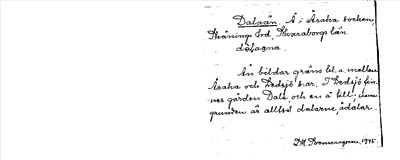 Dalaån. Å i Åsaka socken,
Skånings hd, Skaraborgs län.
dalarna.
Ån bildar gräns bl. a. mellan
Åsaka och Edsjö s:ar. I Edsjö fin-
nes gården Dala, och en å till;
grunden är alltså dalarne, ådalar.
1945.